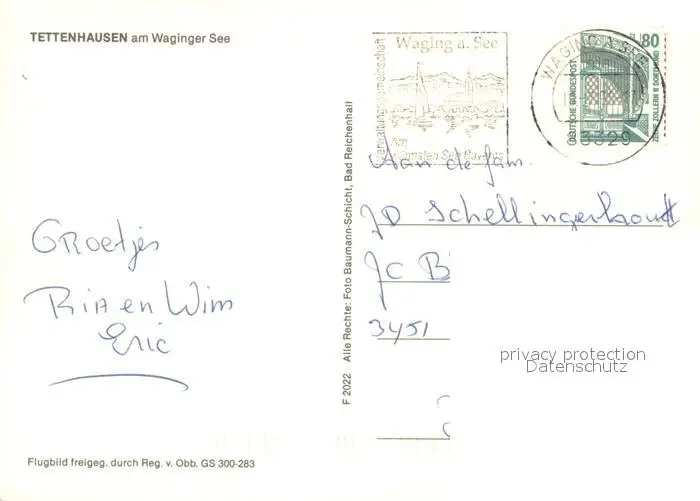 TETTENHAUSEN am Waginger See
Groetjes
Ria en Wim
Eric
Flugbild freigeg. durch Reg. v. Obb. GS 300-283
F 2022 Alle Rechte: Foto Baumann-Schicht, Bad Reichenhall
Verwaltungsgemeinschaft
Waging a. See
Am
wärmsten See Bayerns
WAGING A SEE
80
DEUTSCHE BUNDESPOST
ZECHE ZOLLERN II DORTMUND
Aan de fam.
JD Schellingerhoudt
JC B
3451
privacy protection
Datenschutz